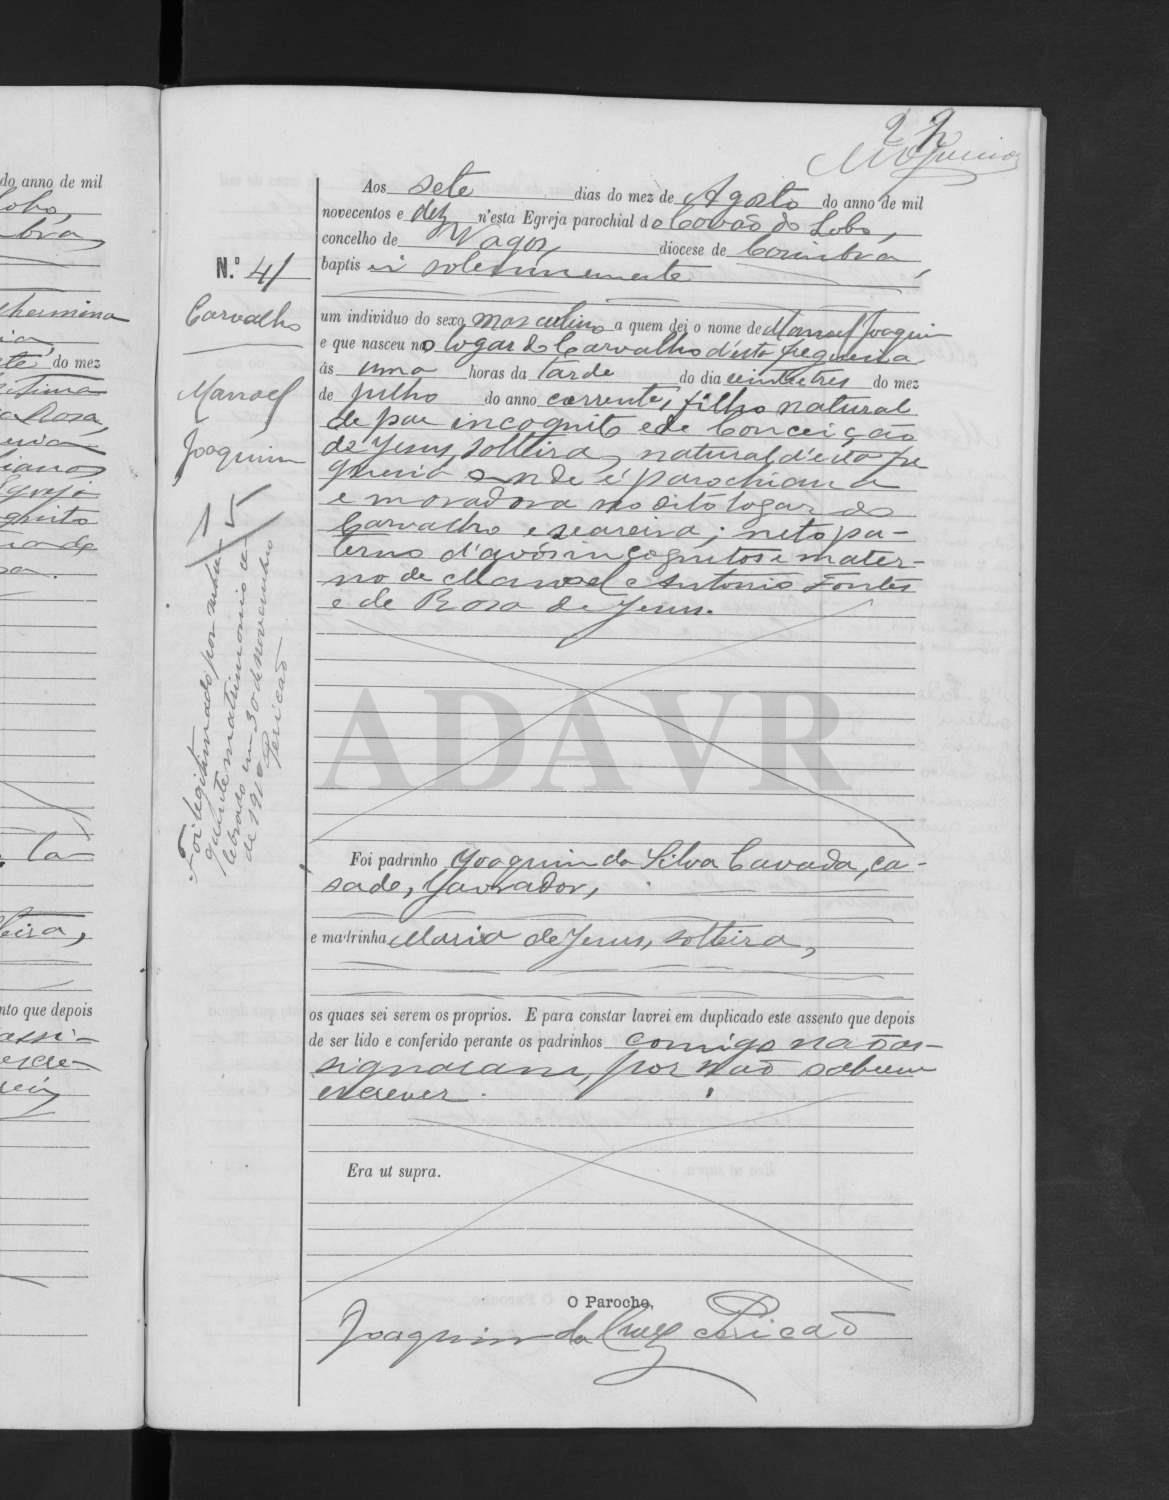 22
Nogueira
N.º 41
Carvalho
Manoel
Joaquim
Foi legitimado por subse
quente matrimonio ce
lebrado em 30 de novembro
de 1910 Pericaõ
Aos sete dias do mez de Agosto do anno de mil
novecentos e dez n'esta Egreja parochial do Covaõ do Lobo,
concelho de Vagos, diocese de Coimbra,
baptisei solemnemente
um individuo do sexo masculino a quem dei o nome de Manoel Joaquim
e que nasceu no logar do Carvalho d'esta freguesia
ás uma horas da tarde do dia vinte e tres do mez
de julho do anno corrente, filho natural
de pae incognito e de Conceição
de Jesus, solteira, natural d'esta fre
guesia onde é parochiana
e moradora no dito logar do
Carvalho e seareira; neto pa-
terno d'avós incognitos e mater-
no de Manoel Antonio Fontes
e de Rosa de Jesus.
ADAVR
Foi padrinho Joaquim da Silva Cavada, ca-
sado, lavrador,
e madrinha Maria de Jesus, solteira,
os quaes sei serem os proprios. E para constar lavrei em duplicado este assento que depois
de ser lido e conferido perante os padrinhos comigo naõ as-
signaram, por naõ saberem
escrever.
Era ut supra.
O Parocho,
Joaquim da Cruz Pericaõ